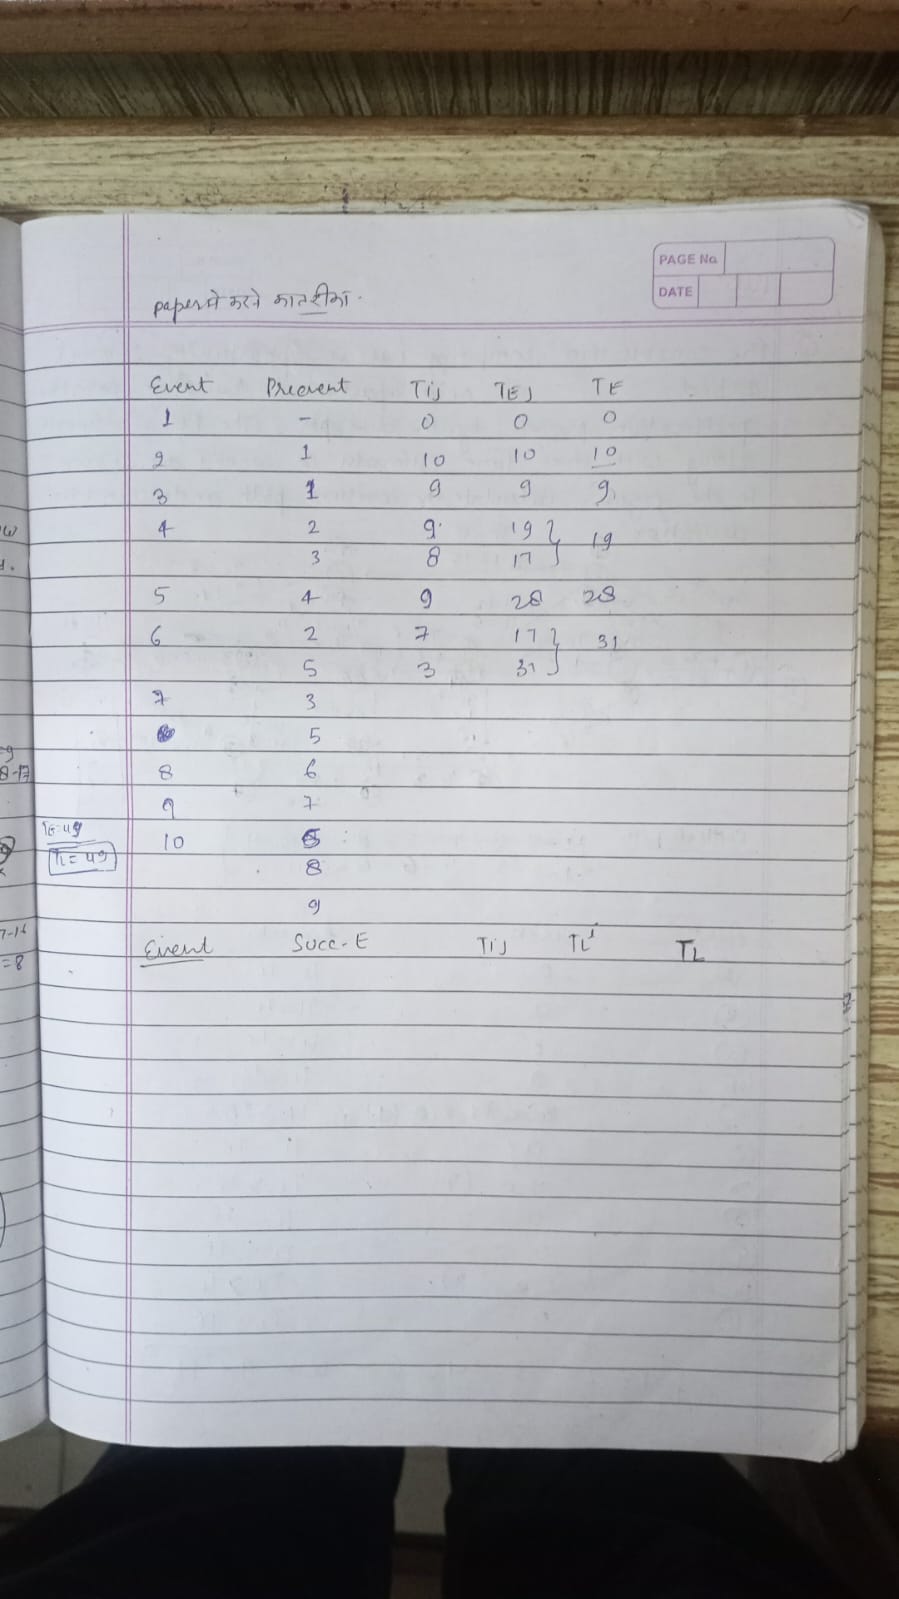 PAGE No.
DATE
paper मे करने का तरीका.
Event Preevent Tij TEj TE
1 - 0 0 0
2 1 10 10 10
3 1 9 9 9
4 2 9 19 } 19
3 8 17
5 4 9 28 28
6 2 7 17 } 31
5 3 31
7 3
5
8 6
9 7
TE=49
10 5
TL=49
8
9
Eivent Succ-E Tij TL' TL
8-17
7-16
=8